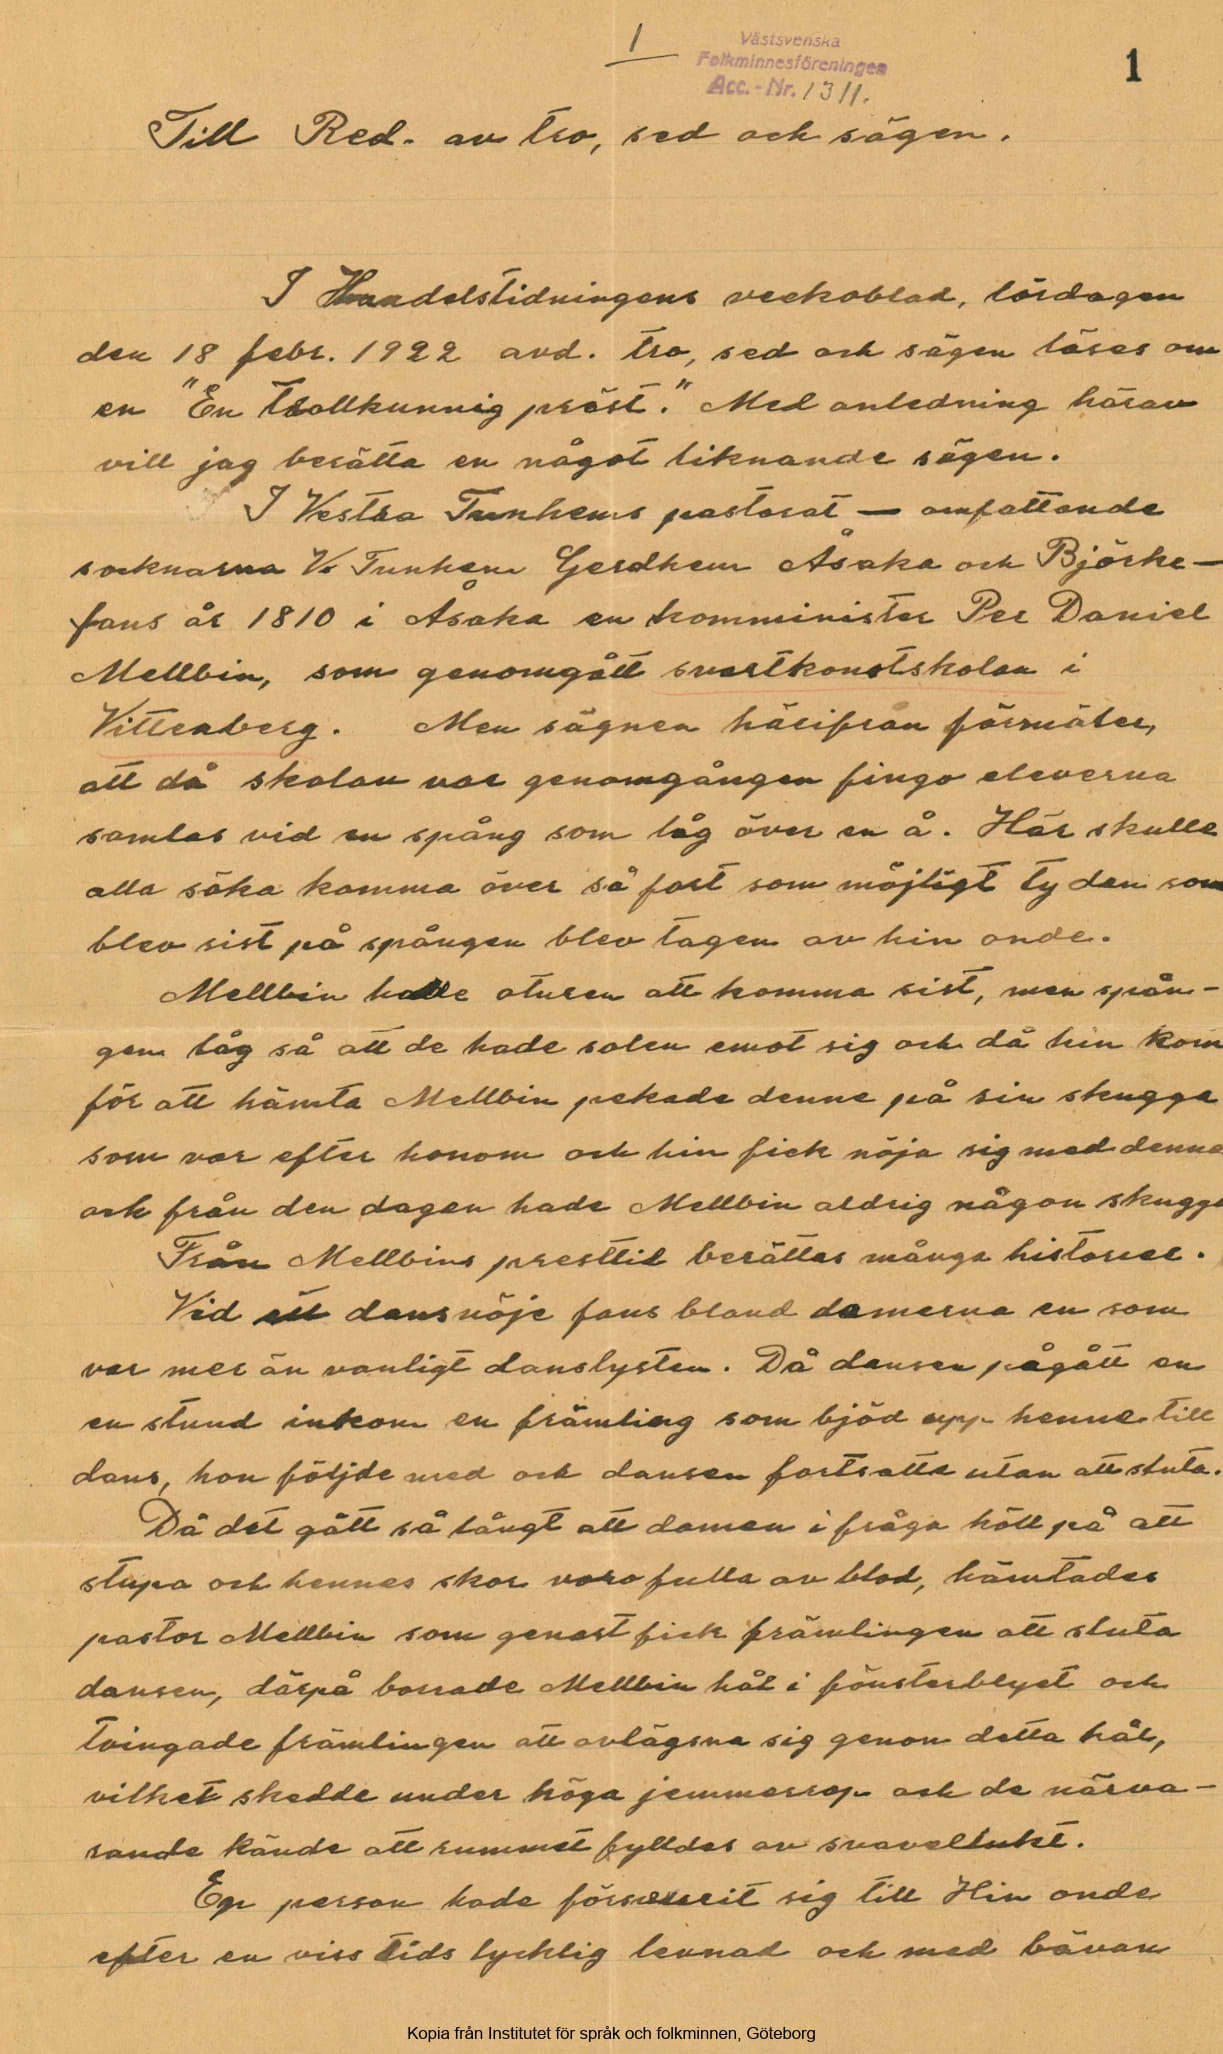 1
Västsvenska
Folkminnesföreningen
Acc.-Nr. 1311.
1
Till Red. av tro, sed och sägen.
I Handelstidningens veckoblad, lördagen
den 18 febr. 1922 avd. tro, sed och sägen läses om
en "En trollkunnig präst." Med anledning härav
vill jag berätta en något liknande sägen.
I Vestra Tunhems pastorat — omfattande
socknarna V. Tunhem Gerdhem Åsaka och Björke —
fans år 1810 i Åsaka en komminister Per Daniel
Mellbin, som genomgått svartkonstskolan i
Vittenberg. Men sägnen härifrån förmäler,
att då skolan var genomgången fingo eleverna
samlas vid en spång som låg över en å. Här skulle
alla söka komma över så fort som möjligt ty den som
blev sist på spången blev tagen av hin onde.
Mellbin hade oturen att komma sist, men spån-
gen låg så att de hade solen emot sig och då hin kom
för att hämta Mellbin pekade denne på sin skugga
som var efter honom och hin fick nöja sig med denna
och från den dagen hade Mellbin aldrig någon skugga
Från Mellbins presttid berättas många historier.
Vid ett dansnöje fans bland damerna en som
var mer än vanligt danslysten. Då dansen pågått en
en stund inkom en främling som bjöd upp henne till
dans, hon följde med och dansen fortsatte utan att sluta.
Då det gått så långt att damen i fråga höll på att
stupa och hennes skor voro fulla av blod, hämtades
pastor Mellbin som genast fick främlingen att sluta
dansen, därpå borrade Mellbin hål i fönsterblyet och
tvingade främlingen att avlägsna sig genom detta hål,
vilket skedde under höga jemmerrop och de närva-
rande kände att rummet fylldes av svavellukt.
En person hade försvurit sig till Hin onde
efter en viss tids lycklig levnad och med bävan
Kopia från Institutet för språk och folkminnen, Göteborg